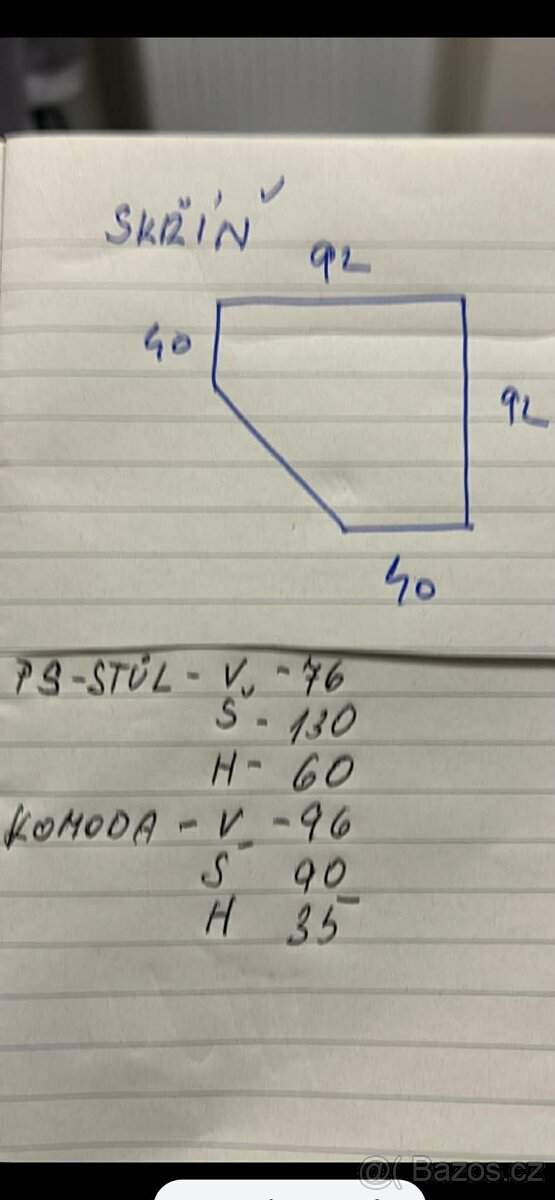 SKŘÍŇ
92
40
92
40
PS-STŮL - V - 76
Š - 130
H - 60
KOMODA - V - 96
Š 90
H 35
Bazos.cz